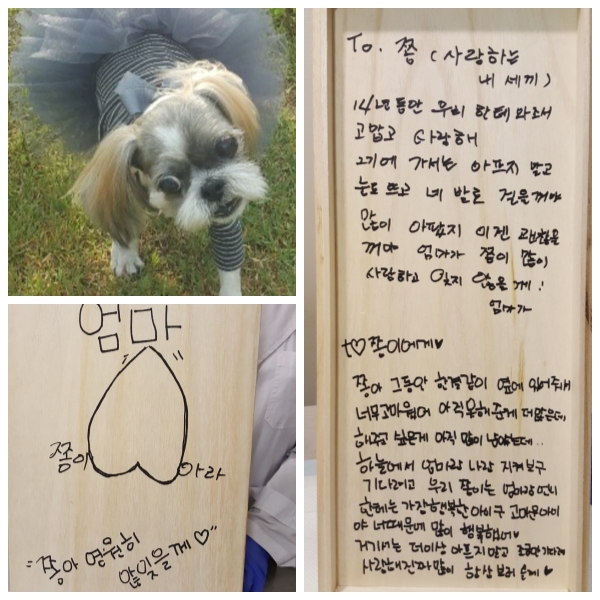 To. 쫑 (사랑하는
내 세끼)
14년동안 우리 한테 와줘서
고맙고 사랑해
거기에 가서는 아프지 말고
눈도 뜨고 네 발로 걸을꺼야
많이 아팠지 이젠 괜찮을
꺼야 엄마가 쫑이 많이
사랑하고 잊지 않을께!
엄마가
to♡쫑이에게♥
쫑아 그동안 한결같이 옆에 있어주어
너무고마웠어 아직못해준게 더많은데
해주고 싶은게 아직 많이 남았는데..
하늘에서 엄마랑 나랑 지켜보구
기다려고 우리 쫑이는 엄마랑 언니
한테는 가장행복한 아이구 고마운아이
야 너때문에 많이 행복했어♥
거기서는 더이상 아프지말고 조금만 기다려
사랑해진짜 많이 항상 보러 올게♥
엄마
쫑이 아라
"쫑아 영원히
않잊을께♡"